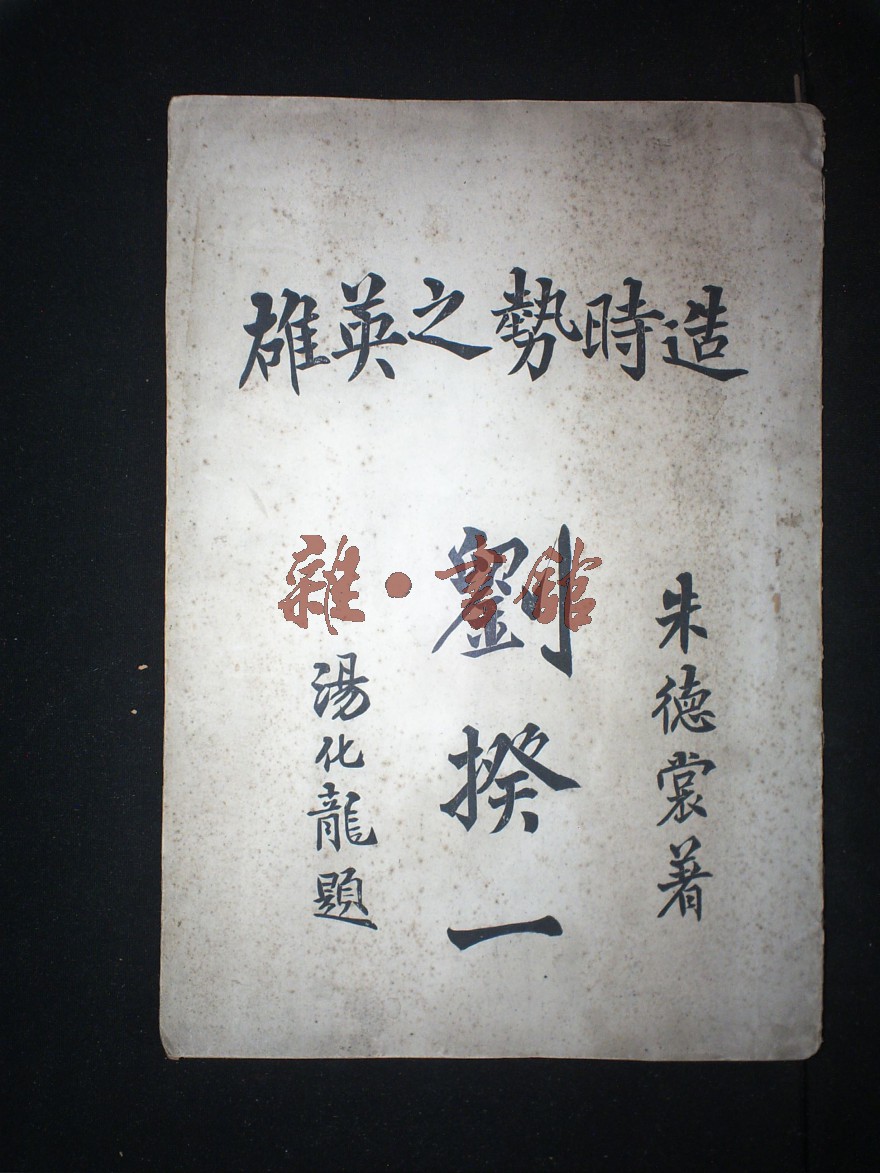 造時勢之英雄
朱德裳著
劉揆一
湯化龍題
雜·書館